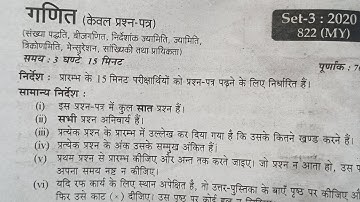 गणित (केवल प्रश्न-पत्र)
Set-3 : 2020
822 (MY)
(संख्या पद्धति, बीजगणित, निर्देशांक ज्यामिति, ज्यामिति,
त्रिकोणमिति, मेन्सुरेशन, सांख्यिकी तथा प्रायिकता)
समय : 3 घण्टे 15 मिनट
पूर्णांक : 7
निर्देश : प्रारम्भ के 15 मिनट परीक्षार्थियों को प्रश्न-पत्र पढ़ने के लिए निर्धारित हैं।
सामान्य निर्देश :
(i) इस प्रश्न-पत्र में कुल सात प्रश्न हैं।
(ii) सभी प्रश्न अनिवार्य हैं।
(iii) प्रत्येक प्रश्न के प्रारम्भ में उल्लेख कर दिया गया है कि उसके कितने खण्ड करने हैं।
(iv) प्रत्येक प्रश्न के अंक उसके सम्मुख अंकित हैं।
(v) प्रथम प्रश्न से प्रारम्भ कीजिए और अन्त तक करते जाइए। जो प्रश्न न आता हो, उस प
अपना समय नष्ट न कीजिए।
(vi) यदि रफ कार्य के लिए स्थान अपेक्षित है, तो उत्तर-पुस्तिका के बाएँ पृष्ठ पर कीजिए अ
फिर उसे काट (×) दीजिए। उस पृष्ठ पर कोई हल न